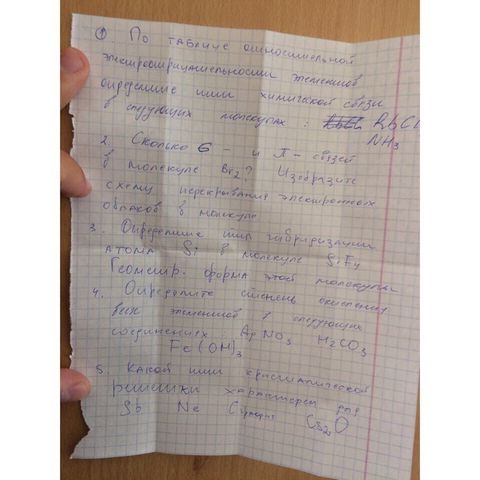 ① По таблице относительной
электроотрицательности элементов
определите тип химической связи
в следующих молекулах: RbCl
NH3
2. Сколько б- и П-связей
в молекуле Br2? Изобразите
схему перекрывания электронных
облаков в молекуле
3. Определите тип гибридизации
АТОМА Si в молекуле SiF4
Геометр. форма этой молекулы
4. Определите степень окисления
всех элементов в следующих
соединениях AgNO3 H2CO3
Fe(OH)3
5. Какой тип кристаллической
решётки характерен для
Sb Ne Cs2O